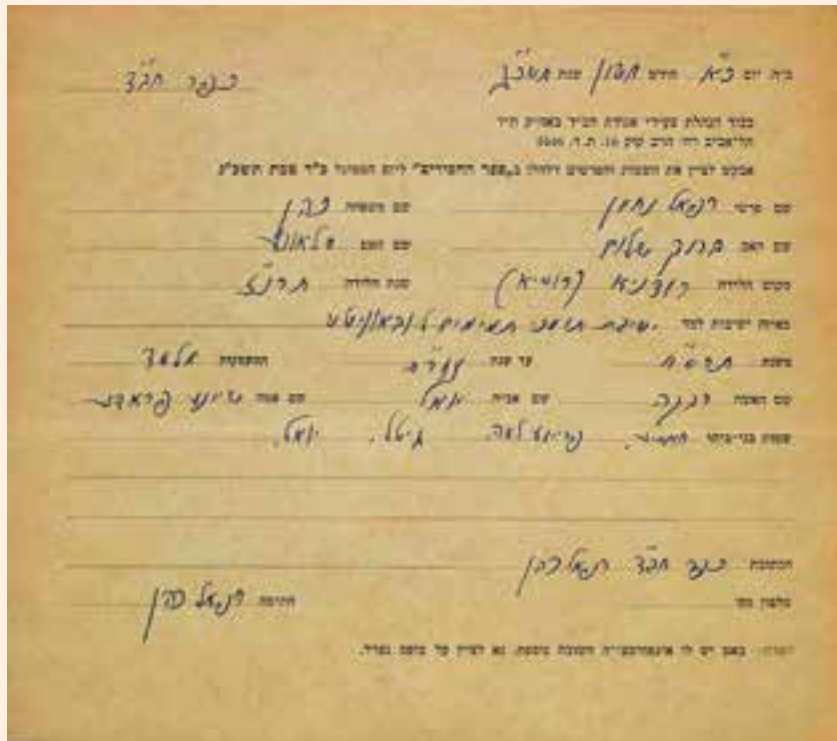 ב"ה יום כ"א חודש חשון שנת תשכ"ג כפר חב"ד
כבוד הנהלת צעירי אגודת חב"ד באה"ק ת"ו
תל־אביב רח' הרב קוק 16, ת.ד.
אבקש לציין את השמות והפרטים דלהלן ב„ספר החסידים" ליום הסגולה כ"ד טבת תשכ"ג
שם פרטי רפאל נחמן שם משפחה כהן
שם האב ברוך שלום שם האם
מקום הלידה רודניא (רוסיא) שנת הלידה תרנ"ז
באיזה ישיבות למד ישיבת תומכי תמימים ליובאוויטש
משנת תרס"ח עד שנת התעסקות מלמד
שם האשה רבקה שם אביה יואל שם אמה שיינע פראדי
שמות בני־ביתו לאה, גיטל, יואל,
הכתובת כפר חב"ד רפאל כהן
טלפון מס' חתימה רפאל כהן
הערה: באם יש לו אינפורמציה חשובה נוספת, נא לציין על טופס נפרד.